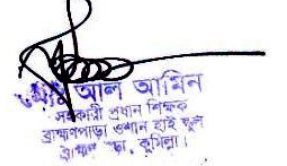 আল আমিন
সহকারী প্রধান শিক্ষক
ব্রাহ্মণপাড়া ওশান হাই স্কুল
কুমিল্লা।